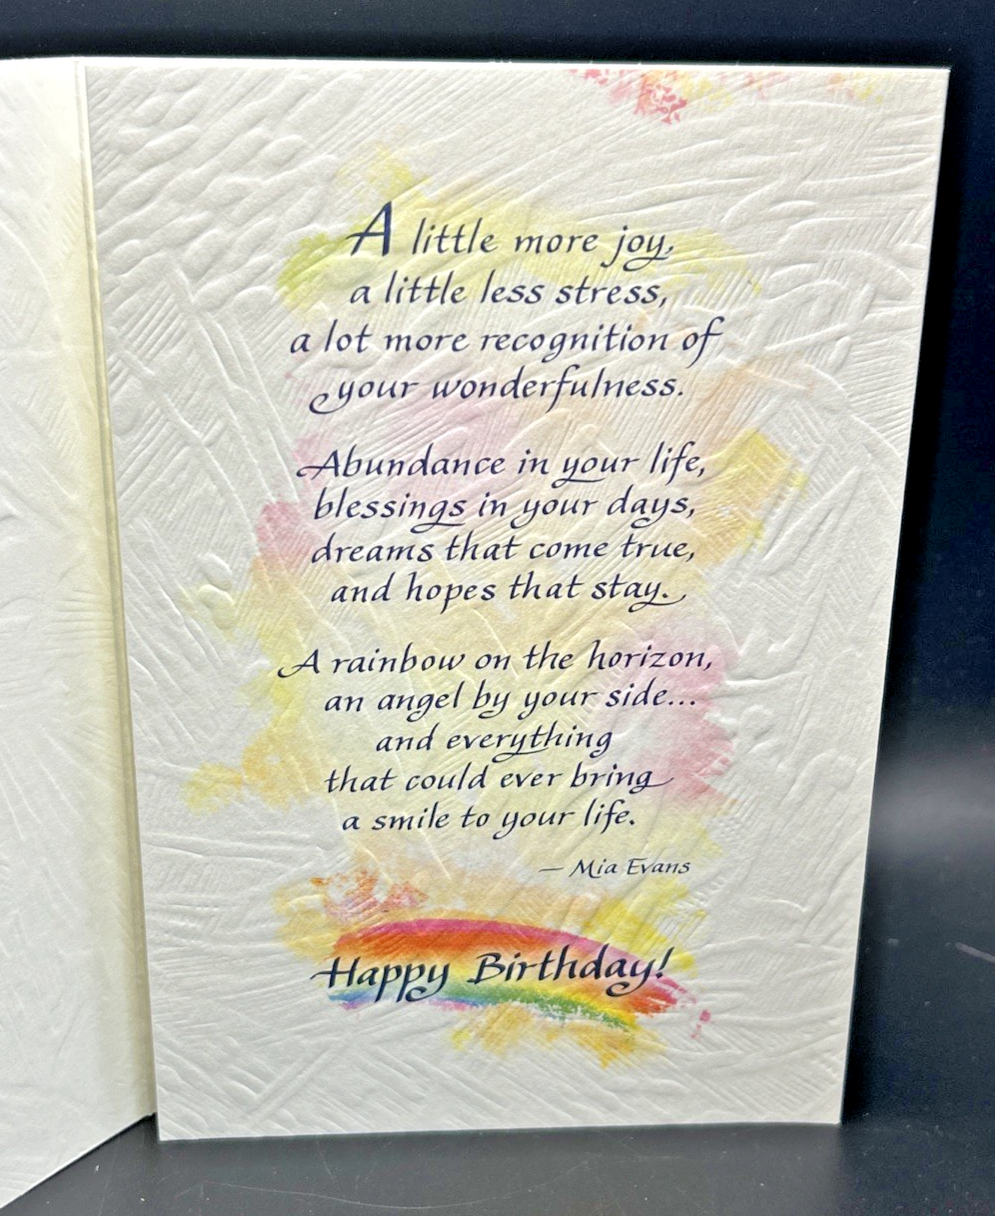 A little more joy,
a little less stress,
a lot more recognition of
your wonderfulness.
Abundance in your life,
blessings in your days,
dreams that come true,
and hopes that stay.
A rainbow on the horizon,
an angel by your side...
and everything
that could ever bring
a smile to your life.
— Mia Evans
Happy Birthday!